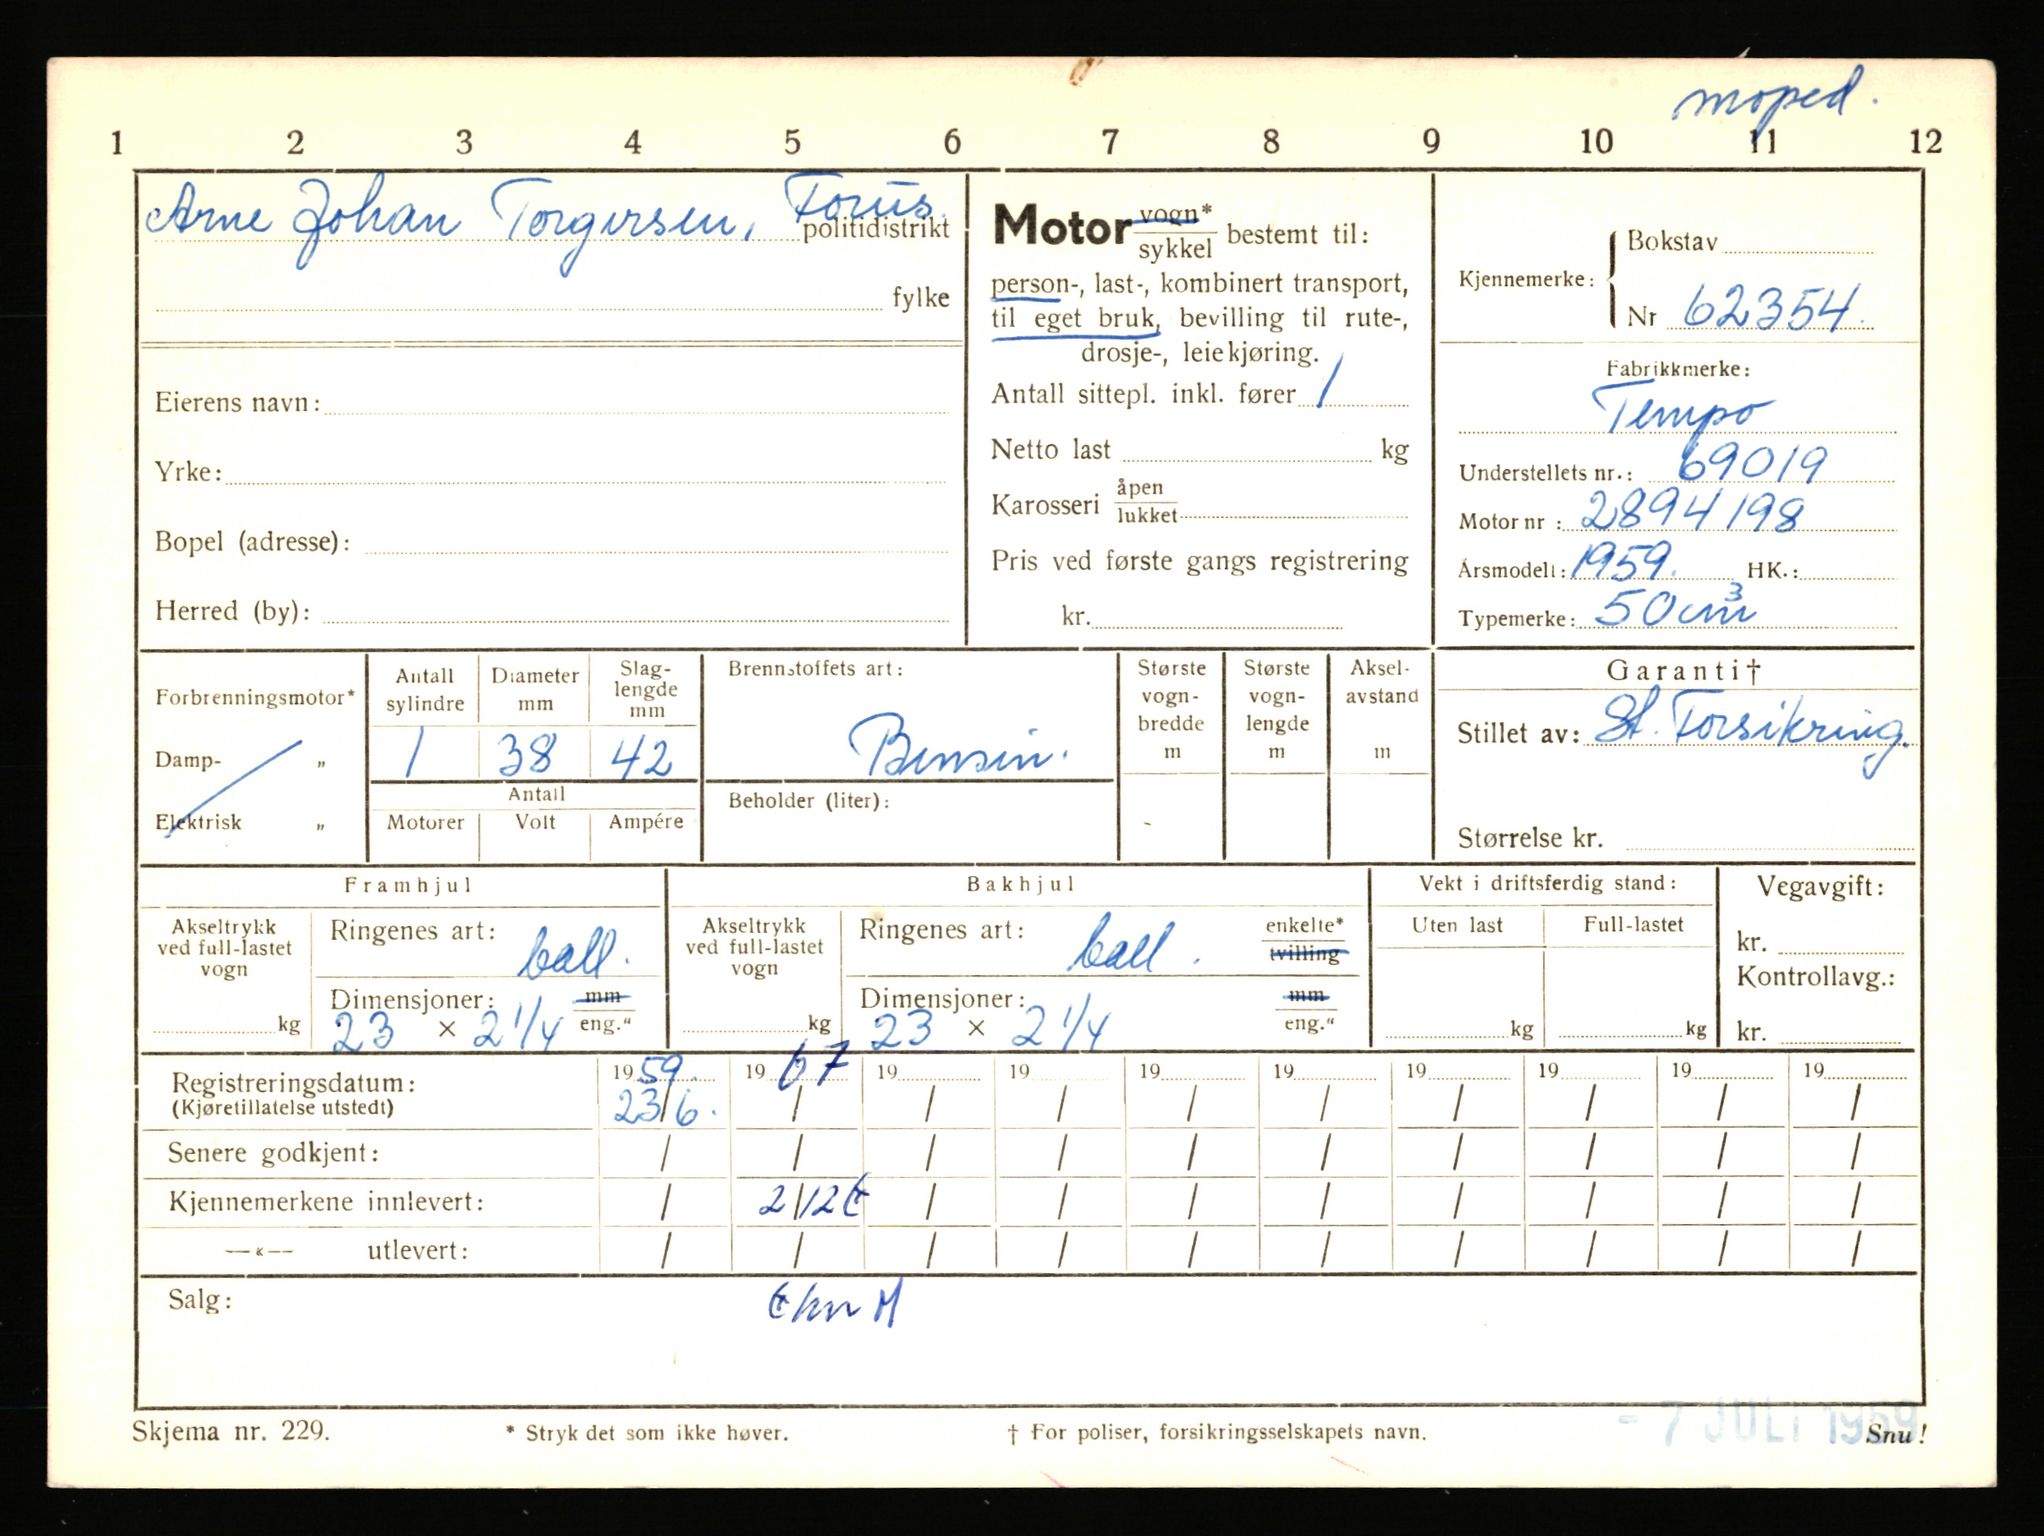 moped.
1 2 3 4 5 6 7 8 9 10 11 12
Arne Johan Torgersen, Forus.
politidistrikt
fylke
Eierens navn:
Yrke:
Bopel (adresse):
Herred (by):
Motor vogn*
sykkel bestemt til:
person-, last-, kombinert transport,
til eget bruk, bevilling til rute-,
drosje-, leiekjøring.
Antall sittepl. inkl. fører 1
Netto last kg
Karosseri åpen
lukket
Pris ved første gangs registrering
kr.
Kjennemerke: Bokstav
Nr 62354.
Fabrikkmerke:
Tempo
Understellets nr.: 69019
Motor nr : 2894198
Årsmodell: 1959. HK.:
Typemerke: 50 cm3
Forbrenningsmotor*
Damp- „
Elektrisk „
Antall sylindre
Diameter mm
Slag-lengde mm
1 38 42
Antall
Motorer Volt Ampére
Brennstoffets art:
Bensin.
Beholder (liter):
Største vogn-bredde m
Største vogn-lengde m
Aksel-avstand m
Garanti†
Stillet av: St. Forsikring.
Størrelse kr.
Framhjul
Akseltrykk ved full-lastet vogn
kg
Ringenes art: ball.
Dimensjoner: mm
23 × 2 1/4 eng."
Bakhjul
Akseltrykk ved full-lastet vogn
kg
Ringenes art: ball. enkelte*
tvilling
Dimensjoner: mm
23 × 2 1/4 eng."
Vekt i driftsferdig stand:
Uten last Full-lastet
kg kg
Vegavgift:
kr.
Kontrollavg.:
kr.
Registreringsdatum: 1959. 1967 19 19 19 19 19 19 19 19
(Kjøretillatelse utstedt) 23/6. / / / / / / / / /
Senere godkjent: / / / / / / / / / /
Kjennemerkene innlevert: / 2/12 / / / / / / / /
—«— utlevert: / / / / / / / / / /
Salg:
Skjema nr. 229.
* Stryk det som ikke høver.
† For poliser, forsikringsselskapets navn.
- 7 JULI 1959
Snu!